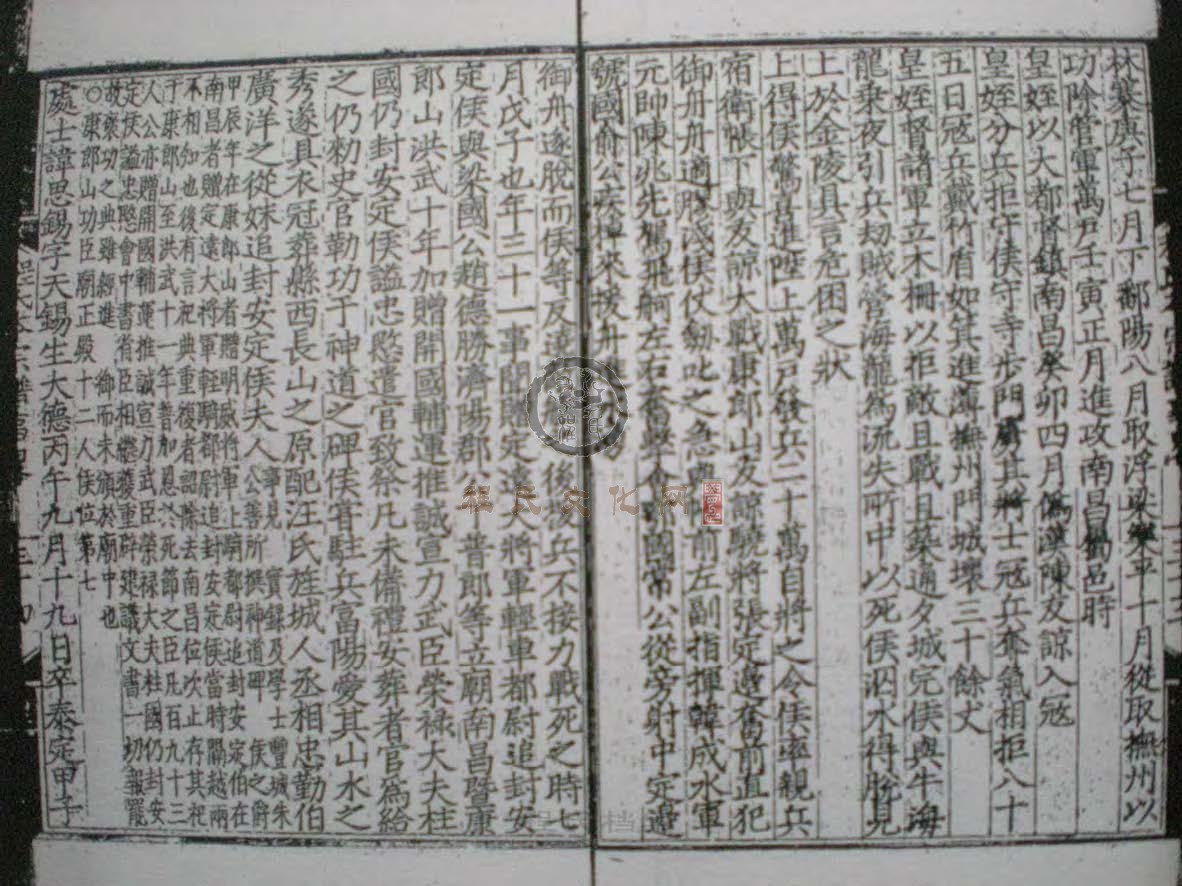 林寨庚子七月下鄱陽八月取浮梁樂平十月從取撫州以
功除管軍萬戶壬寅正月進攻南昌邑時
皇姪以大都督鎮南昌癸卯四月僞漢陳友諒入冦
皇姪分兵拒守侯守寺步門厲其將士冦兵奪氣相拒八十
五日冦兵戴竹盾如箕進薄撫州門城壞三十餘丈
皇姪督諸軍立木柵以拒敵且戰且築通夕城完侯與牛海
龍乘夜引兵刼賊營海龍為流失所中以死侯泅水得脫見
上於金陵具言危困之狀
上得侯驚喜進陞上萬戶發兵二十萬自將之令侯率親兵
宿衛帳下與友諒大戰康郎山友諒驍將張定邊奮前直犯
御舟舟適膠淺侯仗劔叱之急與前左副指揮韓成水軍
元帥陳兆先駕飛舸左右奮擊會鄂國常公從旁射中定邊
虢國俞公疾棹來援舟進水
御舟遂脫而侯等反 後援兵不接力戰死之時七
月戊子也年三十一事聞贈定遠大將軍輕車都尉追封安
定侯與梁國公趙德勝濟陽郡公普郎等立廟南昌暨康
郎山洪武十年加贈開國輔運推誠宣力武臣榮祿大夫柱
國仍封安定侯謚忠愍遣官致祭凡未備禮安葬者官為給
之仍勑史官勒功于神道之碑侯昔駐兵富陽愛其山水之
秀遂具衣冠葬縣西長山之原配汪氏旌城人丞相忠勤伯
廣洋之從妹追封安定侯夫人
事 實錄及學士豐城朱
公善所撰神道碑 侯之爵
甲辰年在康郎山者贈明威將軍上騎都尉追封安定伯在
南昌者贈定遠大將軍輕車都尉追封安定侯當時隔越兩
不相知也後有言祀典重復者詔除去南昌位次止存其祀
于康郎山至洪武十一年普加恩於死節之臣凡百九十三
人公亦贈開國輔運推誠宣力武臣榮祿大夫柱國仍封安
定侯謚忠愍會中書省臣相繼獲重辟建議文書一切報罷
故褒功之典雖經進 御而未頒於廟中也
○康郎山功臣廟正殿十二人侯位第七
處士諱思錫字天錫生大德丙午九月十九日卒泰定甲子
程氏文化网